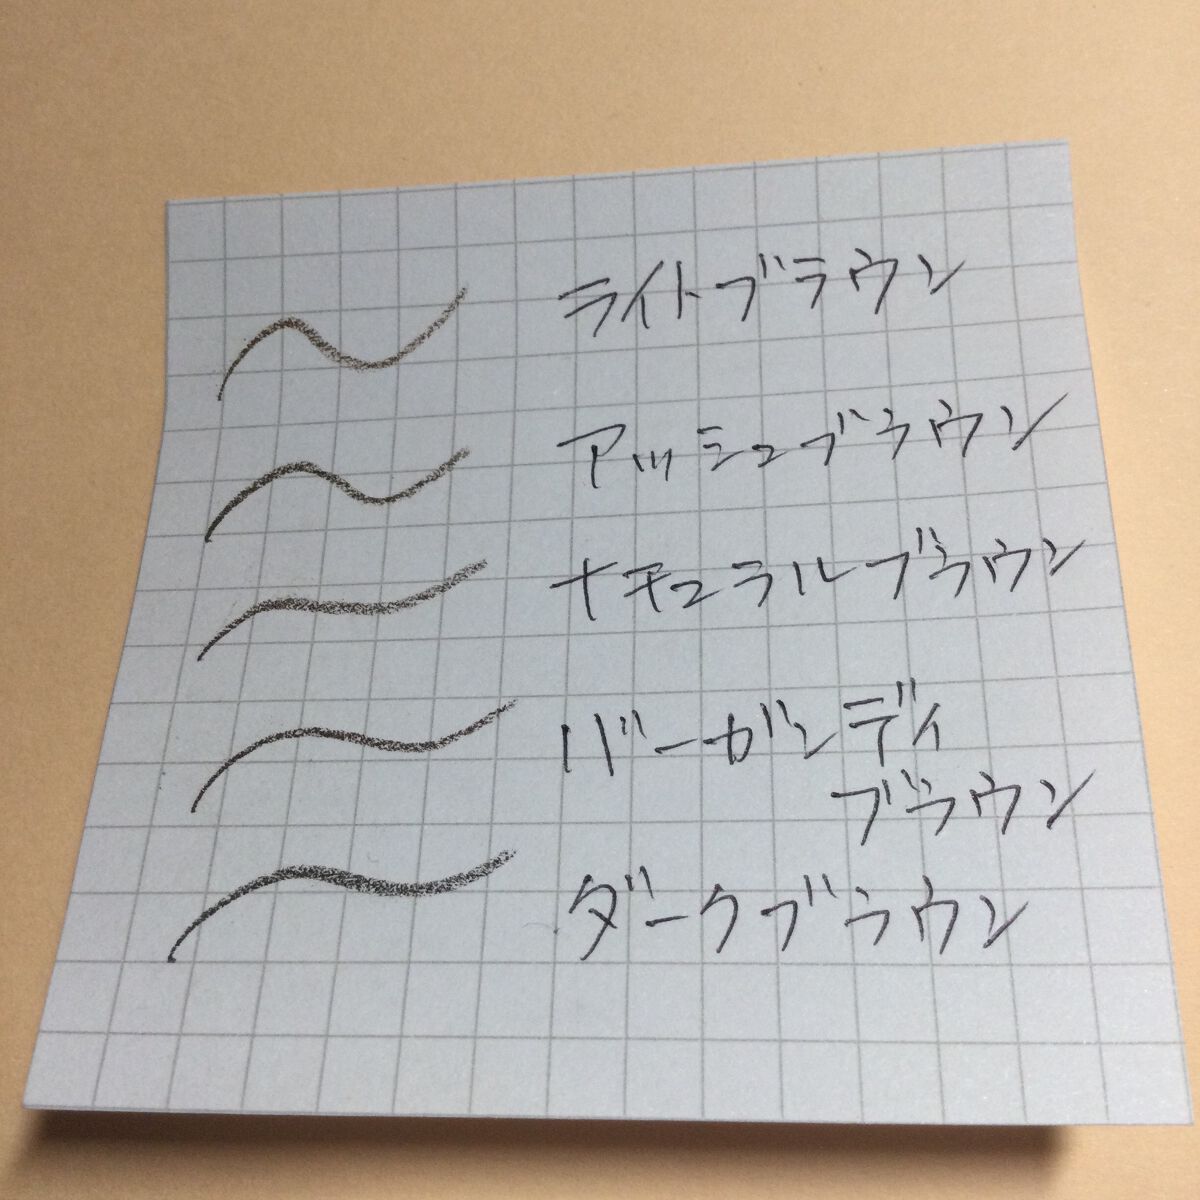 ライトブラウン
アッシュブラウン
ナチュラルブラウン
バーガンディ
ブラウン
ダークブラウン